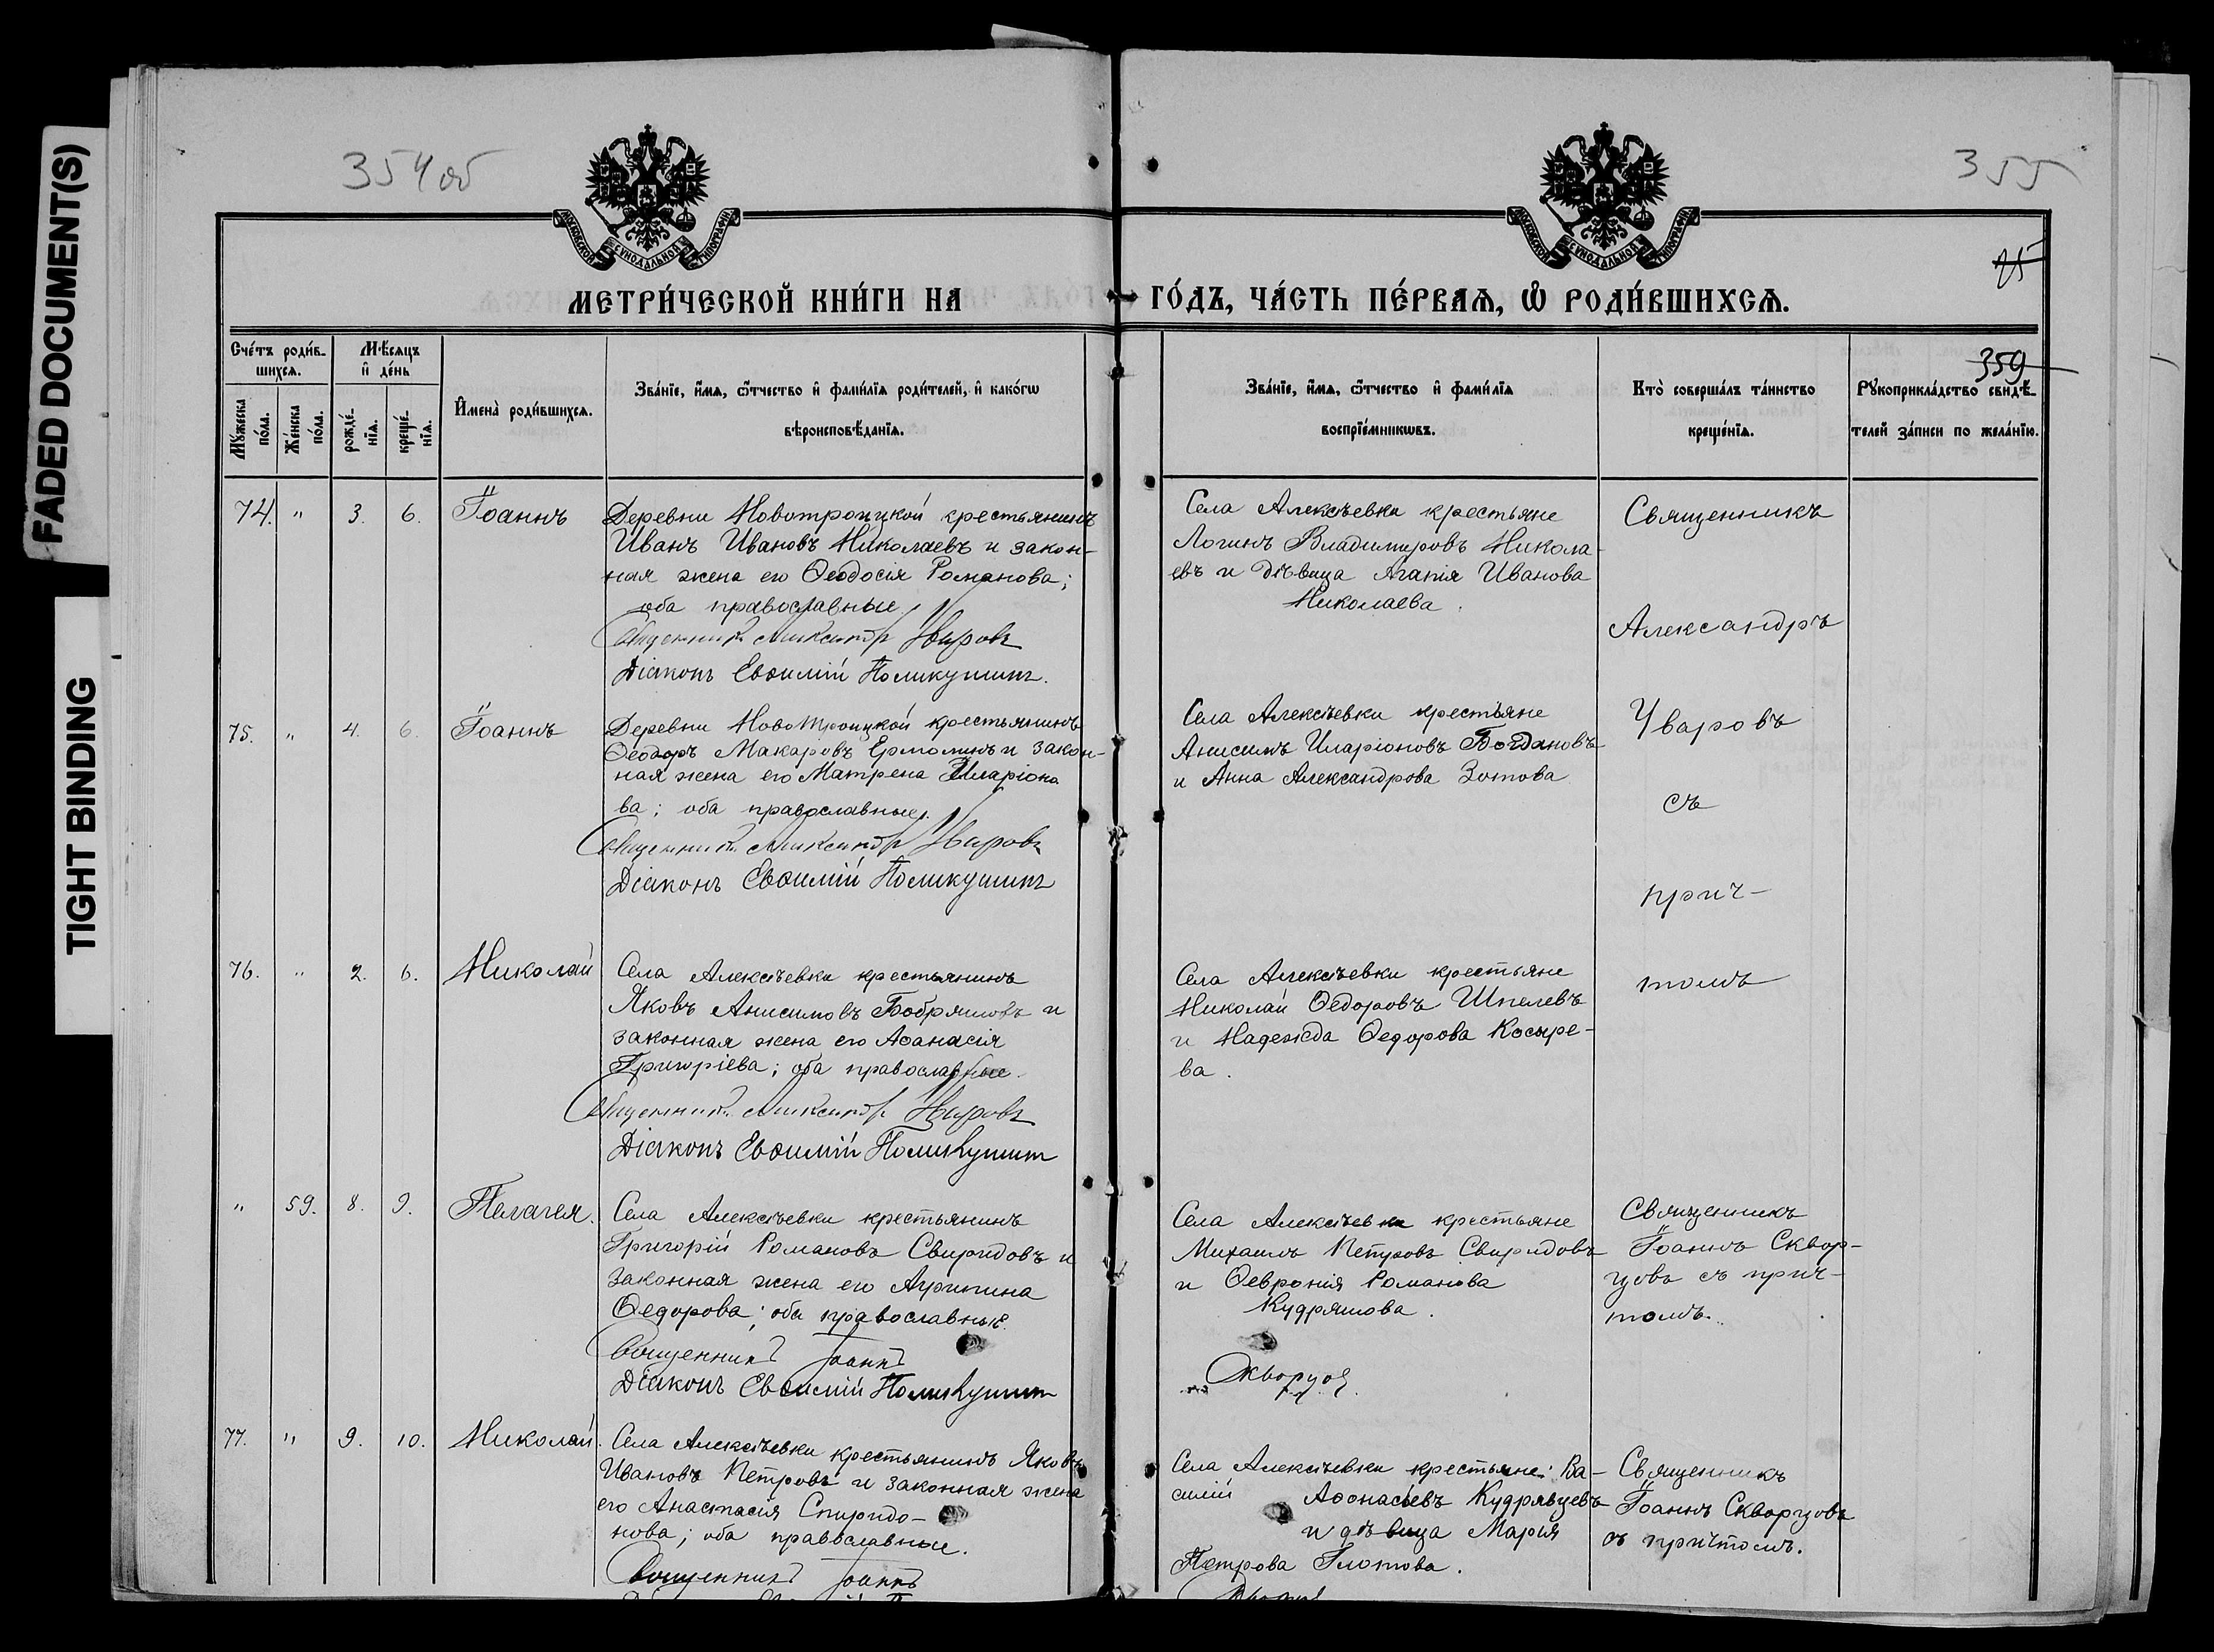 FADED DOCUMENT(S)
TIGHT BINDING
354 об
355
МОСКОВСКОЙ СѴНОДАЛЬНОЙ ТИПОГРАФІИ
МОСКОВСКОЙ СѴНОДАЛЬНОЙ ТИПОГРАФІИ
МЕТРИ́ЧЕСКОЙ КНИ́ГИ НА
ГО́ДЪ, ЧА́СТЬ ПЕ́РВАЯ, Ѽ РОДИ́ВШИХСЯ.
359
Сче́тъ роди́в-
шихся.
Мѣ́сяцъ
и҆ де́нь
Мꙋ́жеска по́ла.
Же́нска по́ла.
рожде́-нїя.
креще́-нїя.
И҆мена̀ роди́вшихся.
Зва́нїе, и҆́мя, ѻ҆́тчество и҆ фами́лїя роди́телей, и҆ како́гѡ
вѣроисповѣ́данїя.
Зва́нїе, и҆́мя, ѻ҆́тчество и҆ фами́лїя
воспрїе́мникѡвъ.
Кто̀ соверша́лъ та́инство
креще́нїя.
Рꙋкоприкла́дство свидѣ́-
телей за́писи по жела́нїю.
74. " 3. 6. Іоаннъ
Деревни Новотроицкой крестьянинъ
Иванъ Ивановъ Николаевъ и закон-
ная жена его Ѳеодосія Романова;
оба православные
Священникъ Александръ Уваровъ
Діаконъ Евѳимій Поликушинъ.
Села Алексѣевки крестьяне
Логинъ Владимировъ Никола-
евъ и дѣвица Агапія Иванова
Николаева.
Священникъ
Александръ
Уваровъ
съ
прич-
томъ
75. " 4. 6. Іоаннъ
Деревни Новотроицкой крестьянинъ
Ѳеодоръ Макаровъ Ермолинъ и закон-
ная жена его Матрена Иларіоно
ва; оба православные.
Священникъ Александръ Уваровъ
Діаконъ Евѳимій Поликушинъ
Села Алексѣевки крестьяне
Анисимъ Иларіоновъ Богдановъ
и Анна Александрова Зотова
76. " 2. 6. Николай
Села Алексѣевки крестьянинъ
Яковъ Анисимовъ Бобряшовъ и
законная жена его Аѳанасія
Григоріева; оба православные.
Священникъ Александръ Уваровъ
Діаконъ Евѳимій Поликушинъ
Села Алексѣевки крестьяне
Николай Ѳедоровъ Шпелевъ
и Надежда Ѳедорова Косыре-
ва.
" 59. 8. 9. Пелагея.
Села Алексѣевки крестьянинъ
Григорій Романовъ Свиридовъ и
законная жена его Агрипина
Ѳедорова; оба православные.
Священникъ Іоаннъ
Діаконъ Евѳимій Поликушинъ
Села Алексѣевки крестьяне
Михаилъ Петровъ Свиридовъ
и Ѳевронія Романова
Кудряшова.
Скворцов
Священникъ
Іоаннъ Сквор-
цовъ съ прич-
томъ.
77. " 9. 10. Николай.
Села Алексѣевки крестьянинъ Яковъ
Ивановъ Петровъ и законная жена
его Анастасія Спиридо-
нова; оба православные.
Священникъ Іоаннъ
Села Алексѣевки крестьяне: Ва-
силій Аѳонасьевъ Кудрявцевъ
и дѣвица Марія
Петрова Глотова.
Священникъ
Іоаннъ Скворцовъ
съ причтомъ.